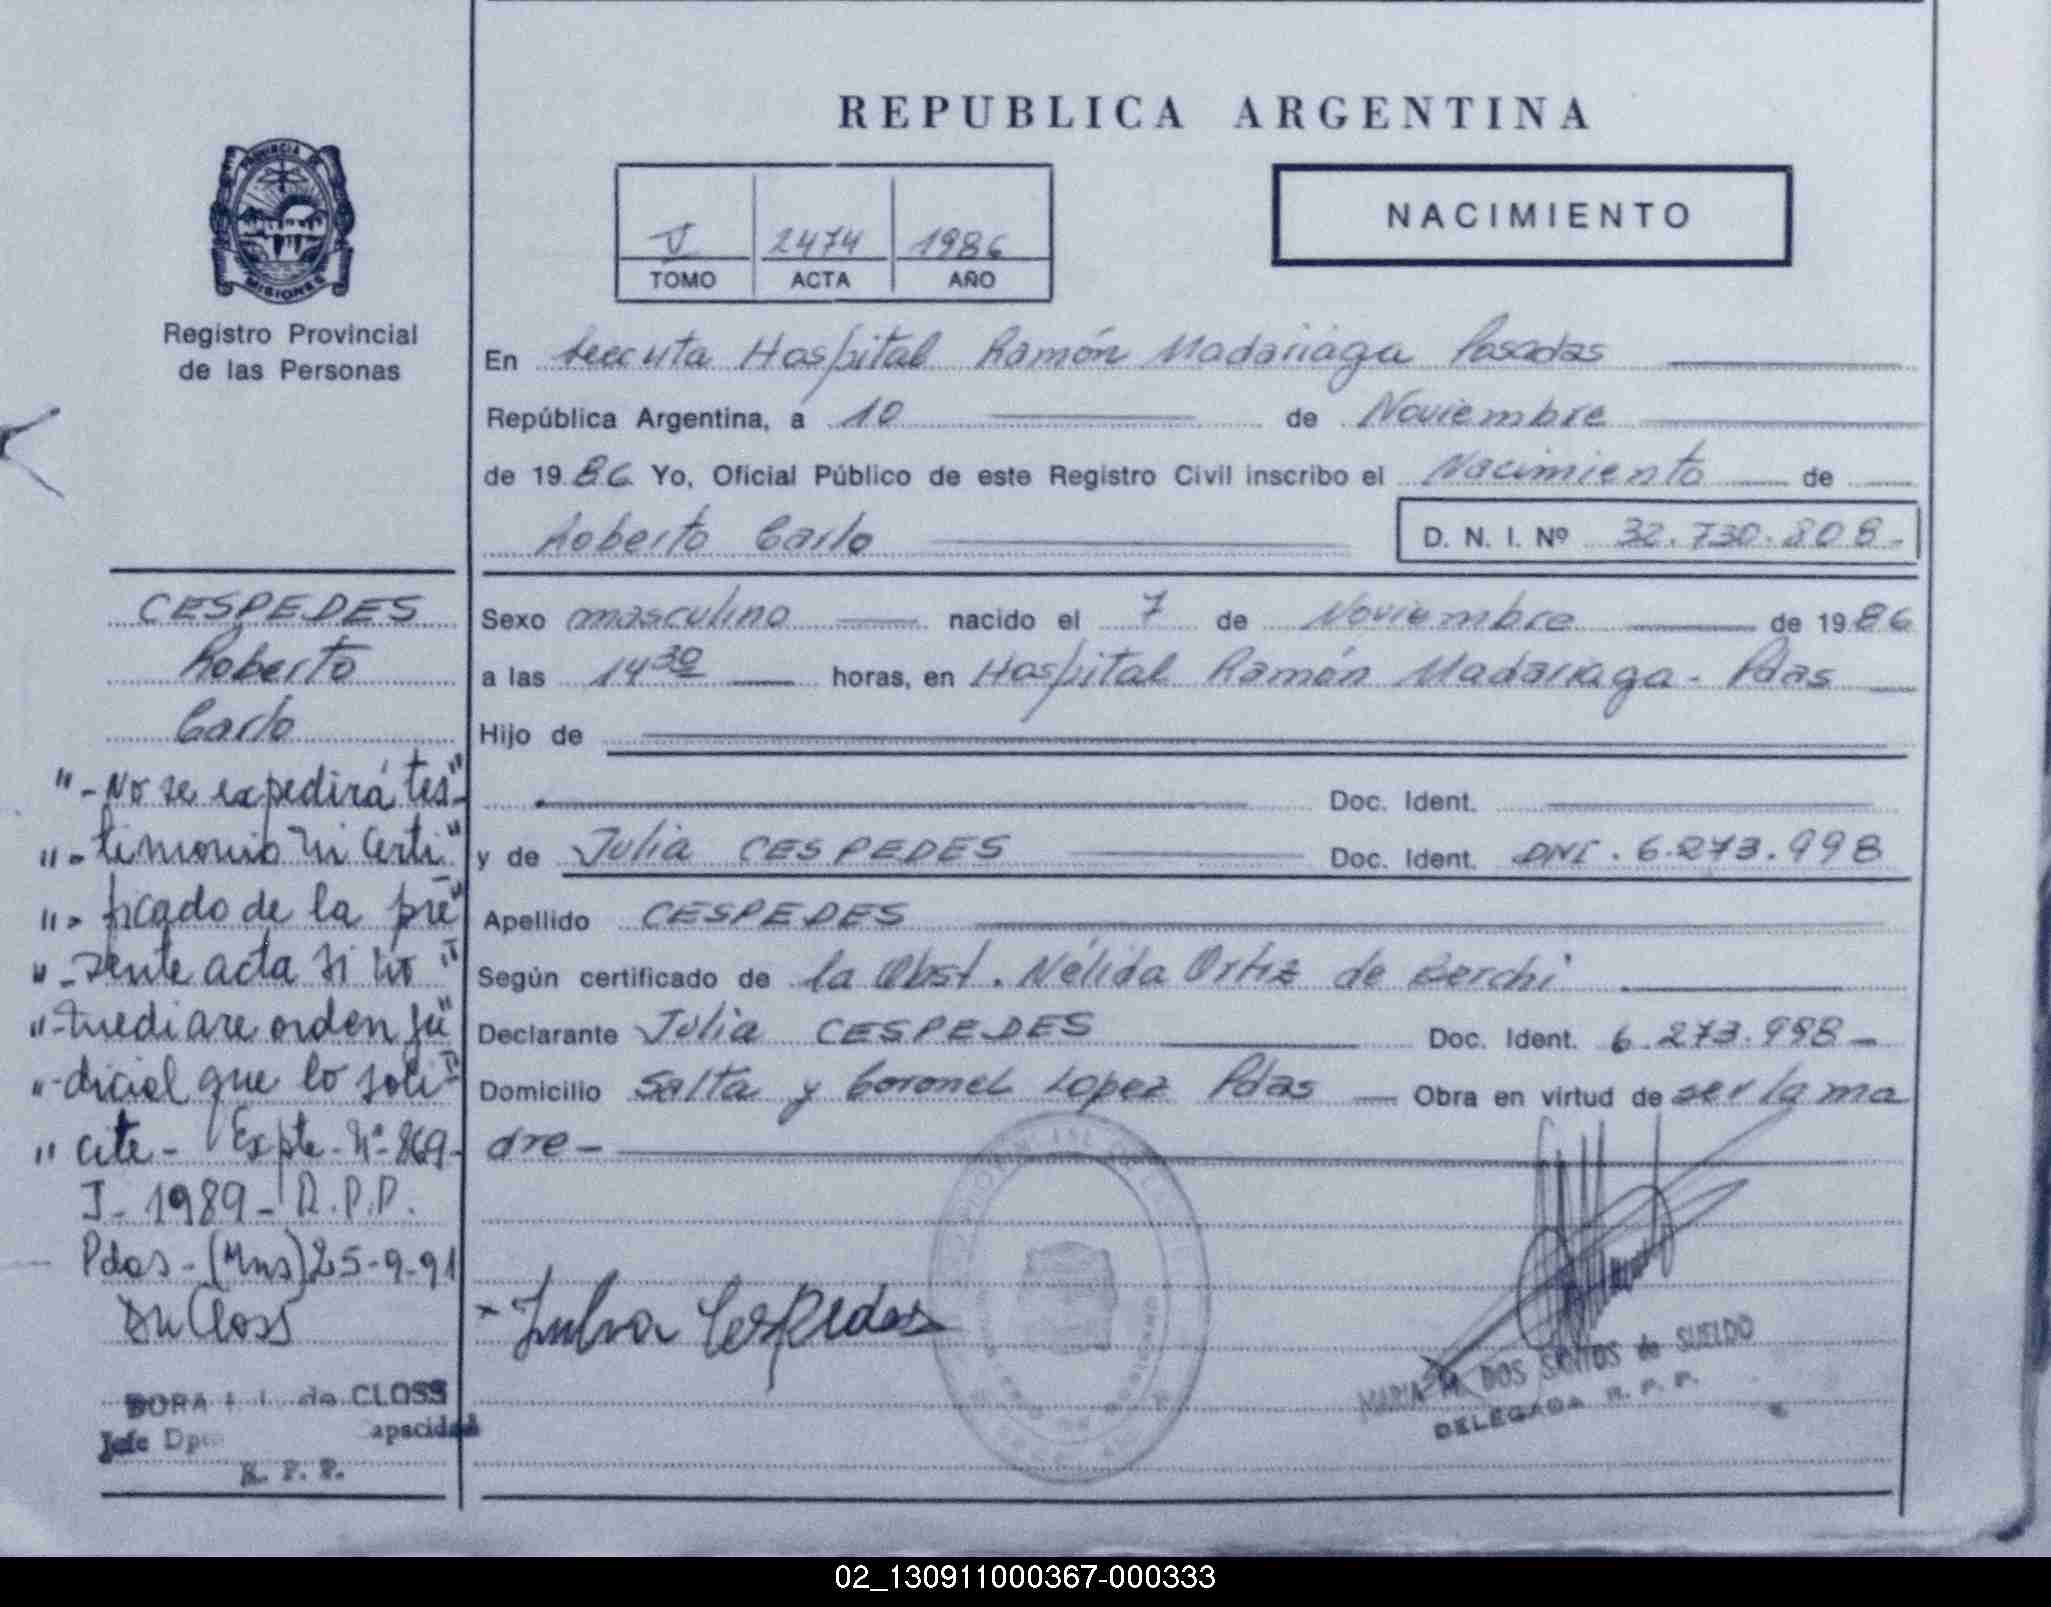 REPUBLICA ARGENTINA
PROVINCIA DE
MISIONES
Registro Provincial
de las Personas
V 2474 1986
TOMO ACTA AÑO
NACIMIENTO
En Hospital Ramón Madariaga Posadas
República Argentina, a 10 de Noviembre
de 1986 Yo, Oficial Público de este Registro Civil inscribo el Nacimiento de
Roberto Carlo D. N. I. Nº 32.730.808.-
CESPEDES
Roberto
Carlo
"- No se expedirá tes"
"- timonio ni certi"
"- ficado de la pre"
"- sente acta si no "
"- mediare orden ju"
"- dicial que lo soli"
" cite - Expte. Nº 869-
J - 1989 - R.P.P.
Pdas - (Mns) 25-9-91
Closs
DORA de CLOSS
Jefe Dpto apacidad
R. P. P.
Sexo masculino nacido el 7 de Noviembre de 1986
a las 14 30 horas, en Hospital Ramón Madariaga - Pdas
Hijo de
Doc. Ident.
y de Julia CESPEDES Doc. Ident. DNI. 6.273.998
Apellido CESPEDES
Según certificado de la Obst. Nélida Ortiz de Berchi
Declarante Julia CESPEDES Doc. Ident. 6.273.998 -
Domicilio Salta y Coronel Lopez Pdas - Obra en virtud de ser la ma
dre -
Julia Cespedes
MARIA M. DOS SANTOS de SUELDO
DELEGADA R. P. P.
02_130911000367-000333